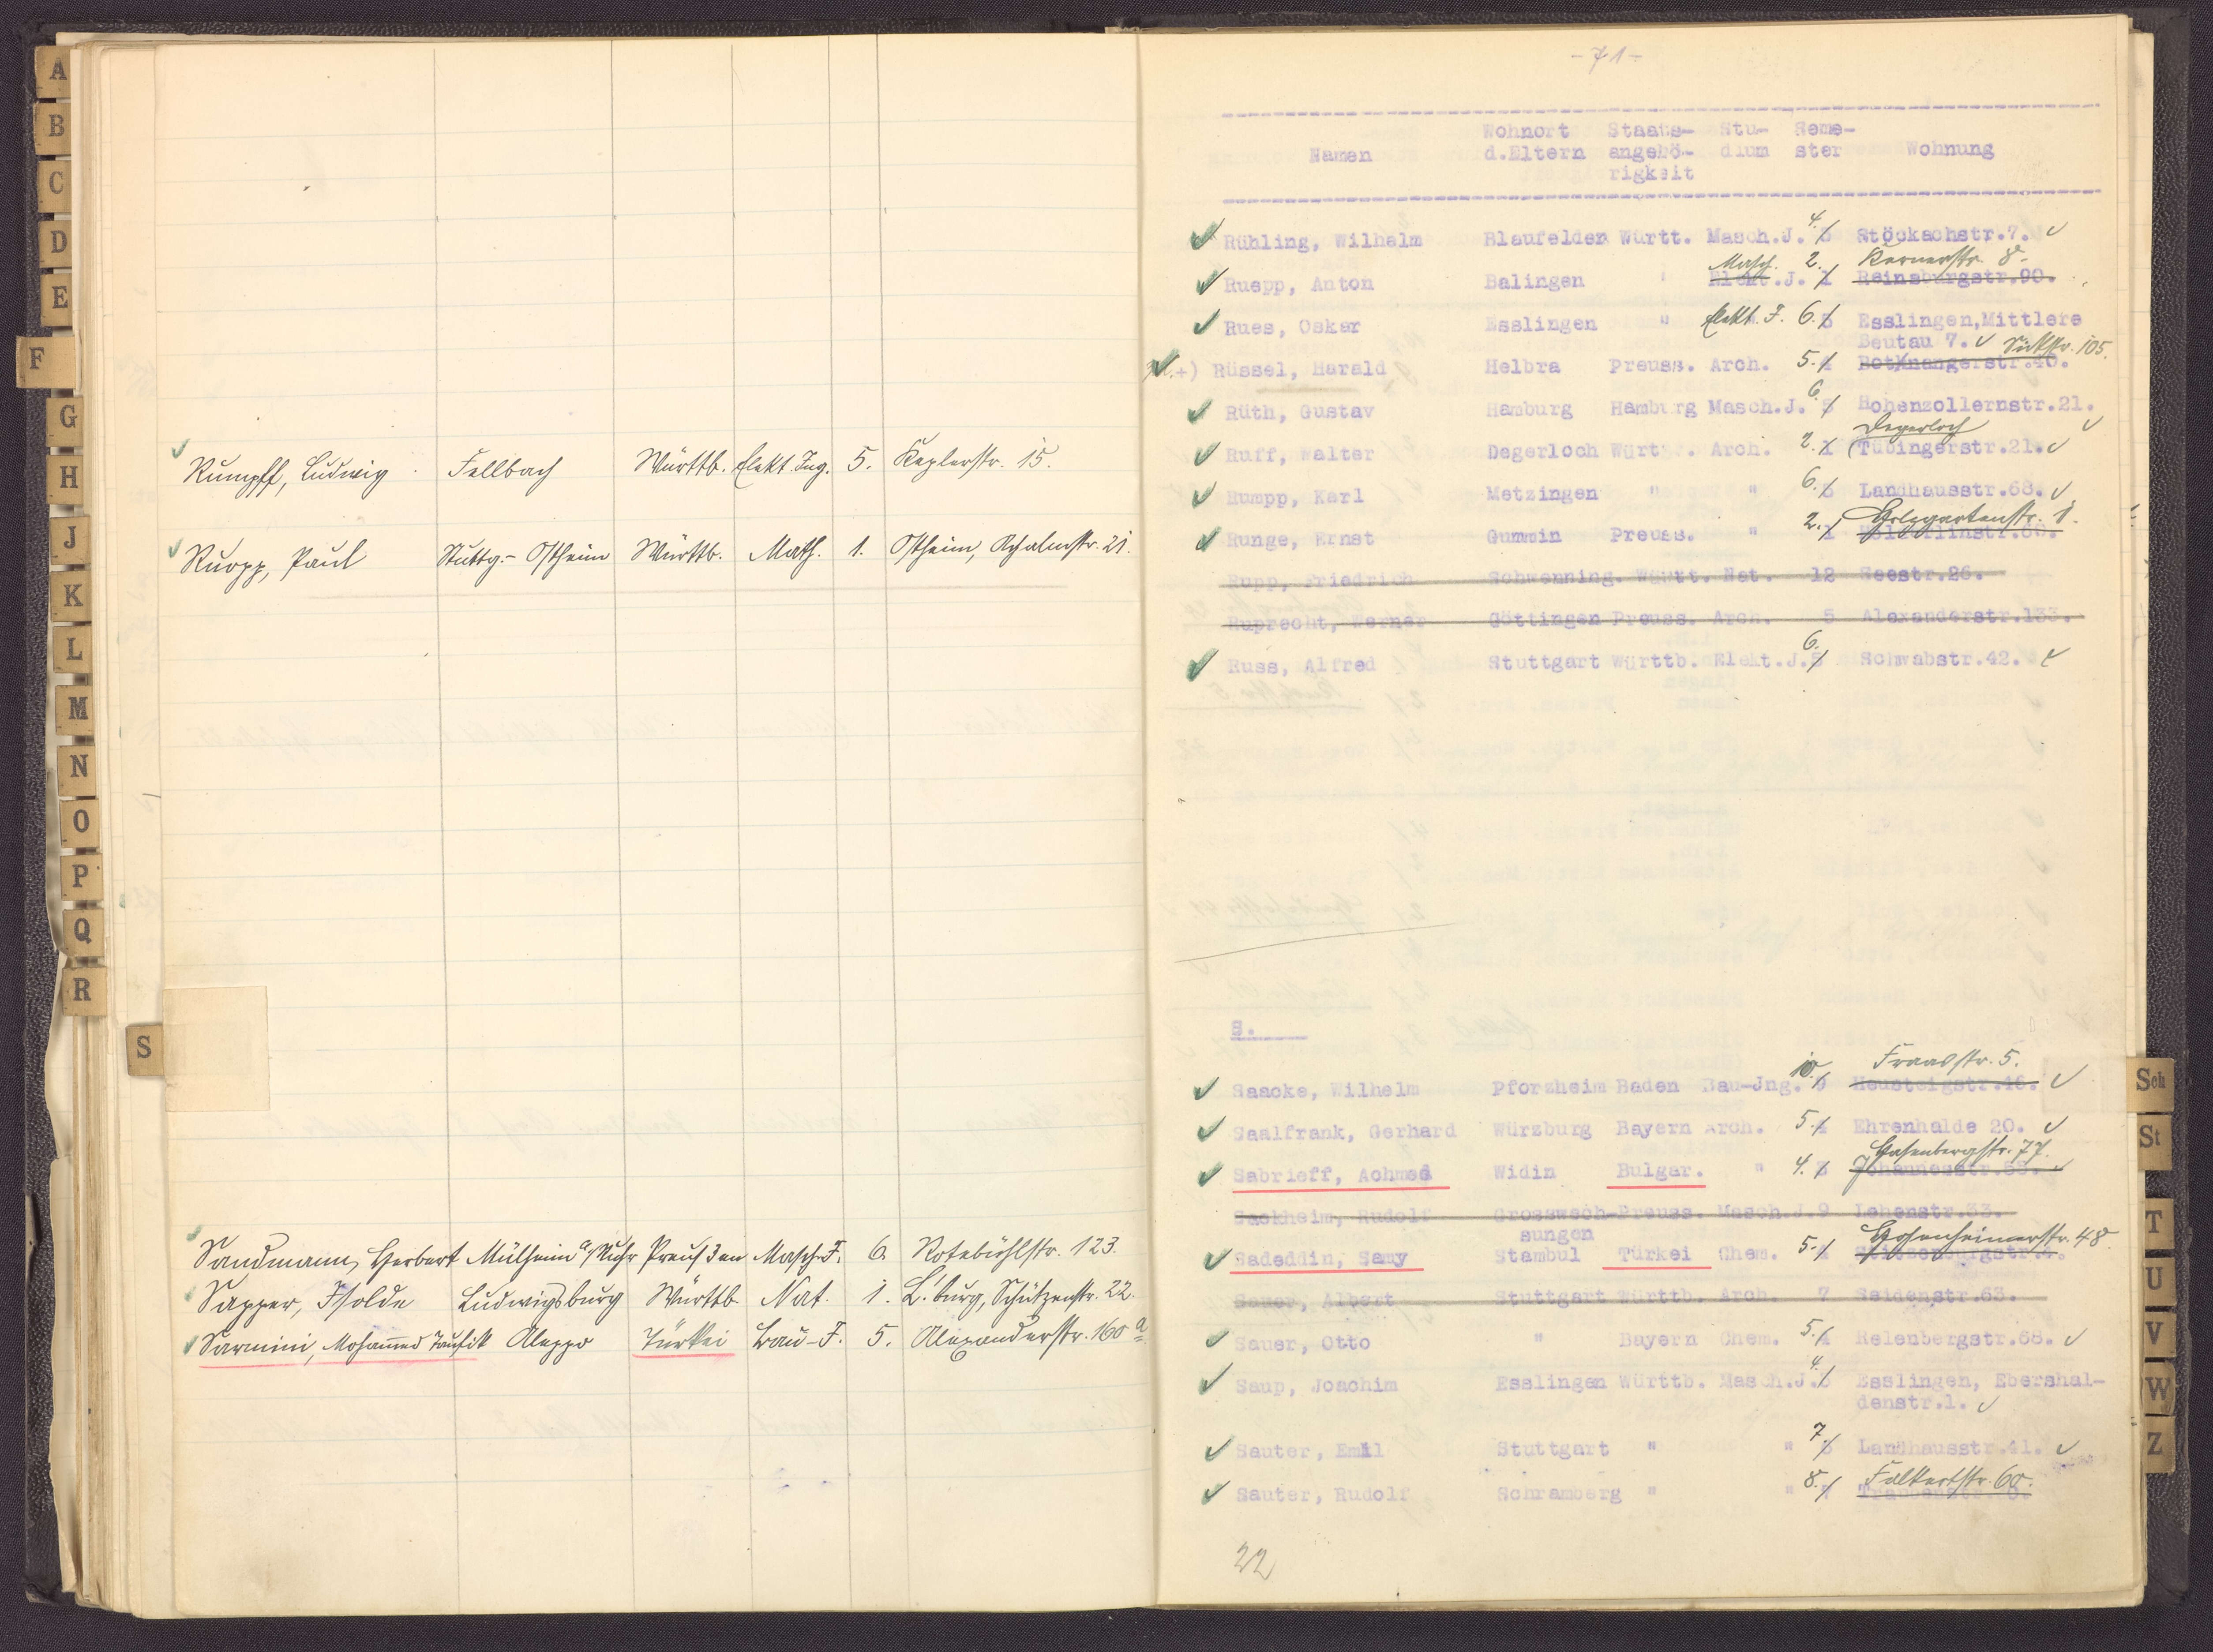 A
B
C
D
E
F
G
H
J
K
L
M
N
O
P
Q
R
S
Rumpff, Ludwig Fellbach Württb. Elekt. Ing. 5. Keplerstr. 15.
Ruopp, Paul Stuttg.- Ostheim Württb. Math. 1. Ostheim, Achalmstr. 21.
Sandmann, Herbert Mülheim a/Ruhr Preußen Masch. J. 6. Rotebühlstr. 123.
Sapper, Isolde Ludwigsburg Württb. Nat. 1. L'burg, Schützenstr. 22.
Sarmini, Mohammed Taufik Aleppo Türkei Bau-J. 5. Alexanderstr. 160 a
- 71 -
Wohnort Staats- Stu- Seme-
Namen d.Eltern angehö- dium ster Wohnung
rigkeit
Rühling, Wilhelm Blaufelden Württ. Masch.J. 4. Stöckachstr.7.
Masch. 2. Kernerstr. 8.
Ruepp, Anton Balingen " Elekt.J. 1 Reinsburgstr.90.
Rues, Oskar Esslingen " Elekt. J. 6. 5 Esslingen,Mittlere
Beutau 7. Sickstr. 105.
+) Rüssel, Harald Helbra Preuss. Arch. 5. 4 Botnangerstr.40.
Rüth, Gustav Hamburg Hamburg Masch.J. 6. 5 Hohenzollernstr.21.
Degerloch
Ruff, Walter Degerloch Württ. Arch. 2. 1 (Tübingerstr.21.
Rumpp, Karl Metzingen " " 6. 5 Landhausstr.68.
Holzgartenstr. 8.
Runge, Ernst Gummin Preuss. " 2. 1 Hölderlinstr.60.
Rupp, Friedrich Schwenning. Württ. Nat. 12 Seestr.26.
Ruprecht, Werner Göttingen Preuss. Arch. 5 Alexanderstr.133.
Russ, Alfred Stuttgart Württb. Elekt.J. 6. 5 Schwabstr.42.
S.
Fraasstr. 5.
Saacke, Wilhelm Pforzheim Baden Bau-Jng. 10. 9 Heusteigstr.46.
Saalfrank, Gerhard Würzburg Bayern Arch. 5. 4 Ehrenhalde 20.
Hasenbergstr. 77.
Sabrieff, Achmed Widin Bulgar. " 4. 3 Johannesstr.58.
Sackheim, Rudolf Grosswech- Preuss. Masch.J. 9 Lehenstr.33.
sungen
Gosenheimerstr. 48.
Sadeddin, Samy Stambul Türkei Chem. 5. 4
Sauer, Albert Stuttgart Württb. Arch. 7 Seidenstr.63.
Sauer, Otto " Bayern Chem. 5. 4 Relenbergstr.68.
Saup, Joachim Esslingen Württb. Masch.J. 4. 3 Esslingen, Ebershal-
denstr.1.
Sauter, Emil Stuttgart " " 7. Landhausstr.41.
Falkertstr. 60.
Sauter, Rudolf Schramberg " " 8. 7
22
Sch
St
T
U
V
W
Z